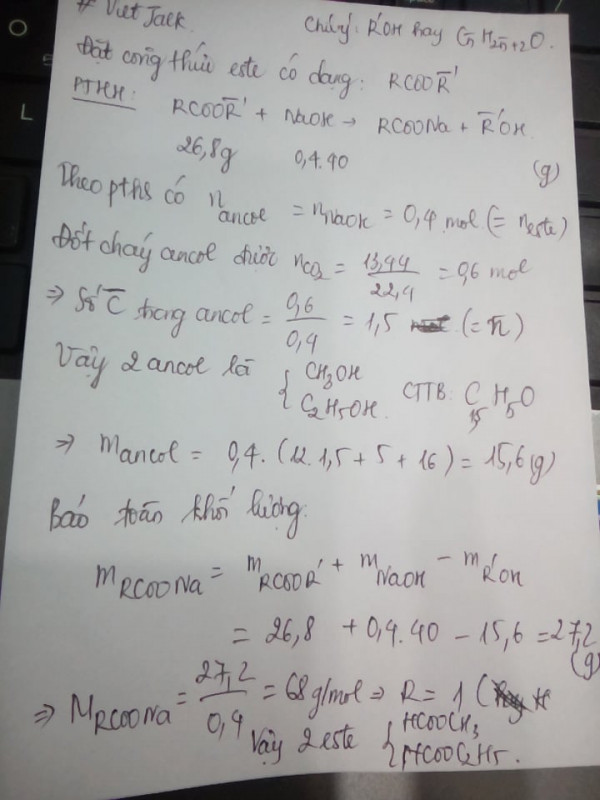 # VietJack.
Chú ý: R'OH hay Cn̄H2n̄+2O.
Đặt công thức este có dạng: RCOOR̄'
PTHH:
RCOOR̄' + NaOH → RCOONa + R̄'OH.
26,8g 0,4.40 (g)
Theo pthh có nancol = nNaOH = 0,4 mol (= neste)
Đốt cháy ancol được nCO2 = 13,44/22,4 = 0,6 mol
⇒ Số C̄ trong ancol = 0,6/0,4 = 1,5 (= n̄)
Vậy 2 ancol là { CH3OH
C2H5OH. CTTB: C1,5H5O
⇒ mancol = 0,4.(12.1,5 + 5 + 16) = 15,6(g)
Bảo toàn khối lượng:
mRCOONa = mRCOOR' + mNaOH - mR'OH
= 26,8 + 0,4.40 - 15,6 = 27,2
(g)
⇒ MRCOONa = 27,2/0,4 = 68g/mol ⇒ R = 1 (
Vậy 2 este { HCOOCH3
HCOOC2H5.